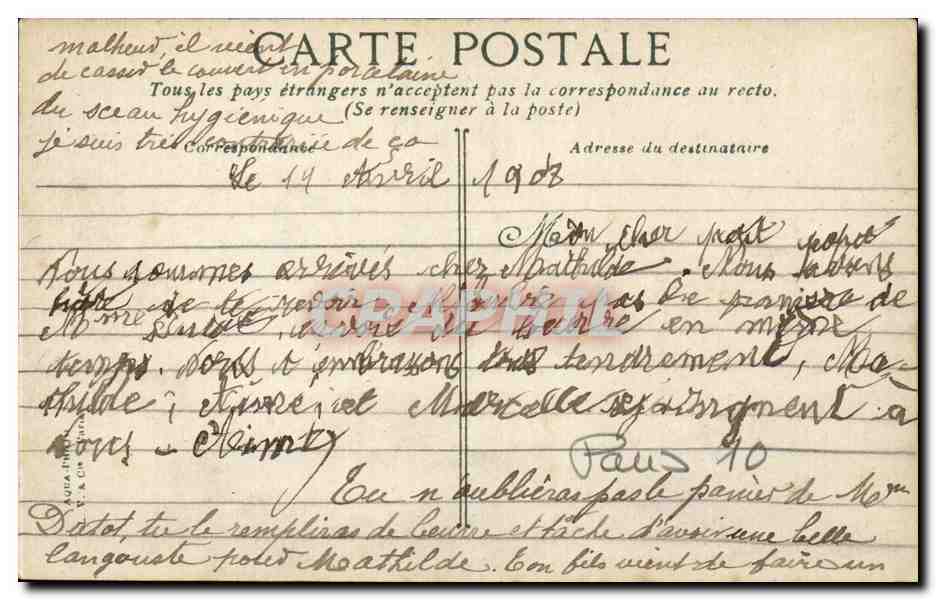 malheur, il vient
de casser le couvert en porcelaine
du sceau hygiénique
je suis très contrariée de ça
CARTE POSTALE
Tous les pays étrangers n'acceptent pas la correspondance au recto.
(Se renseigner à la poste)
Correspondance
Adresse du destinataire
Le 14 Avril 1908
Mon cher petit
Nous sommes arrivés chez Mathilde. Nous
de te revoir. pas le panier de
Mme du beurre en même
temps. t'embrassons tous tendrement, Ma-
thilde, et Marcelle se joignent à
nous - Aimé
Paris 10
AQUA-PHOTO
Tu n'oublieras pas le panier de Mme
Dutot, tu le rempliras de beurre et tâche d'avoir une belle
langouste pour Mathilde. Ton fils vient de faire un
CPAPHIL